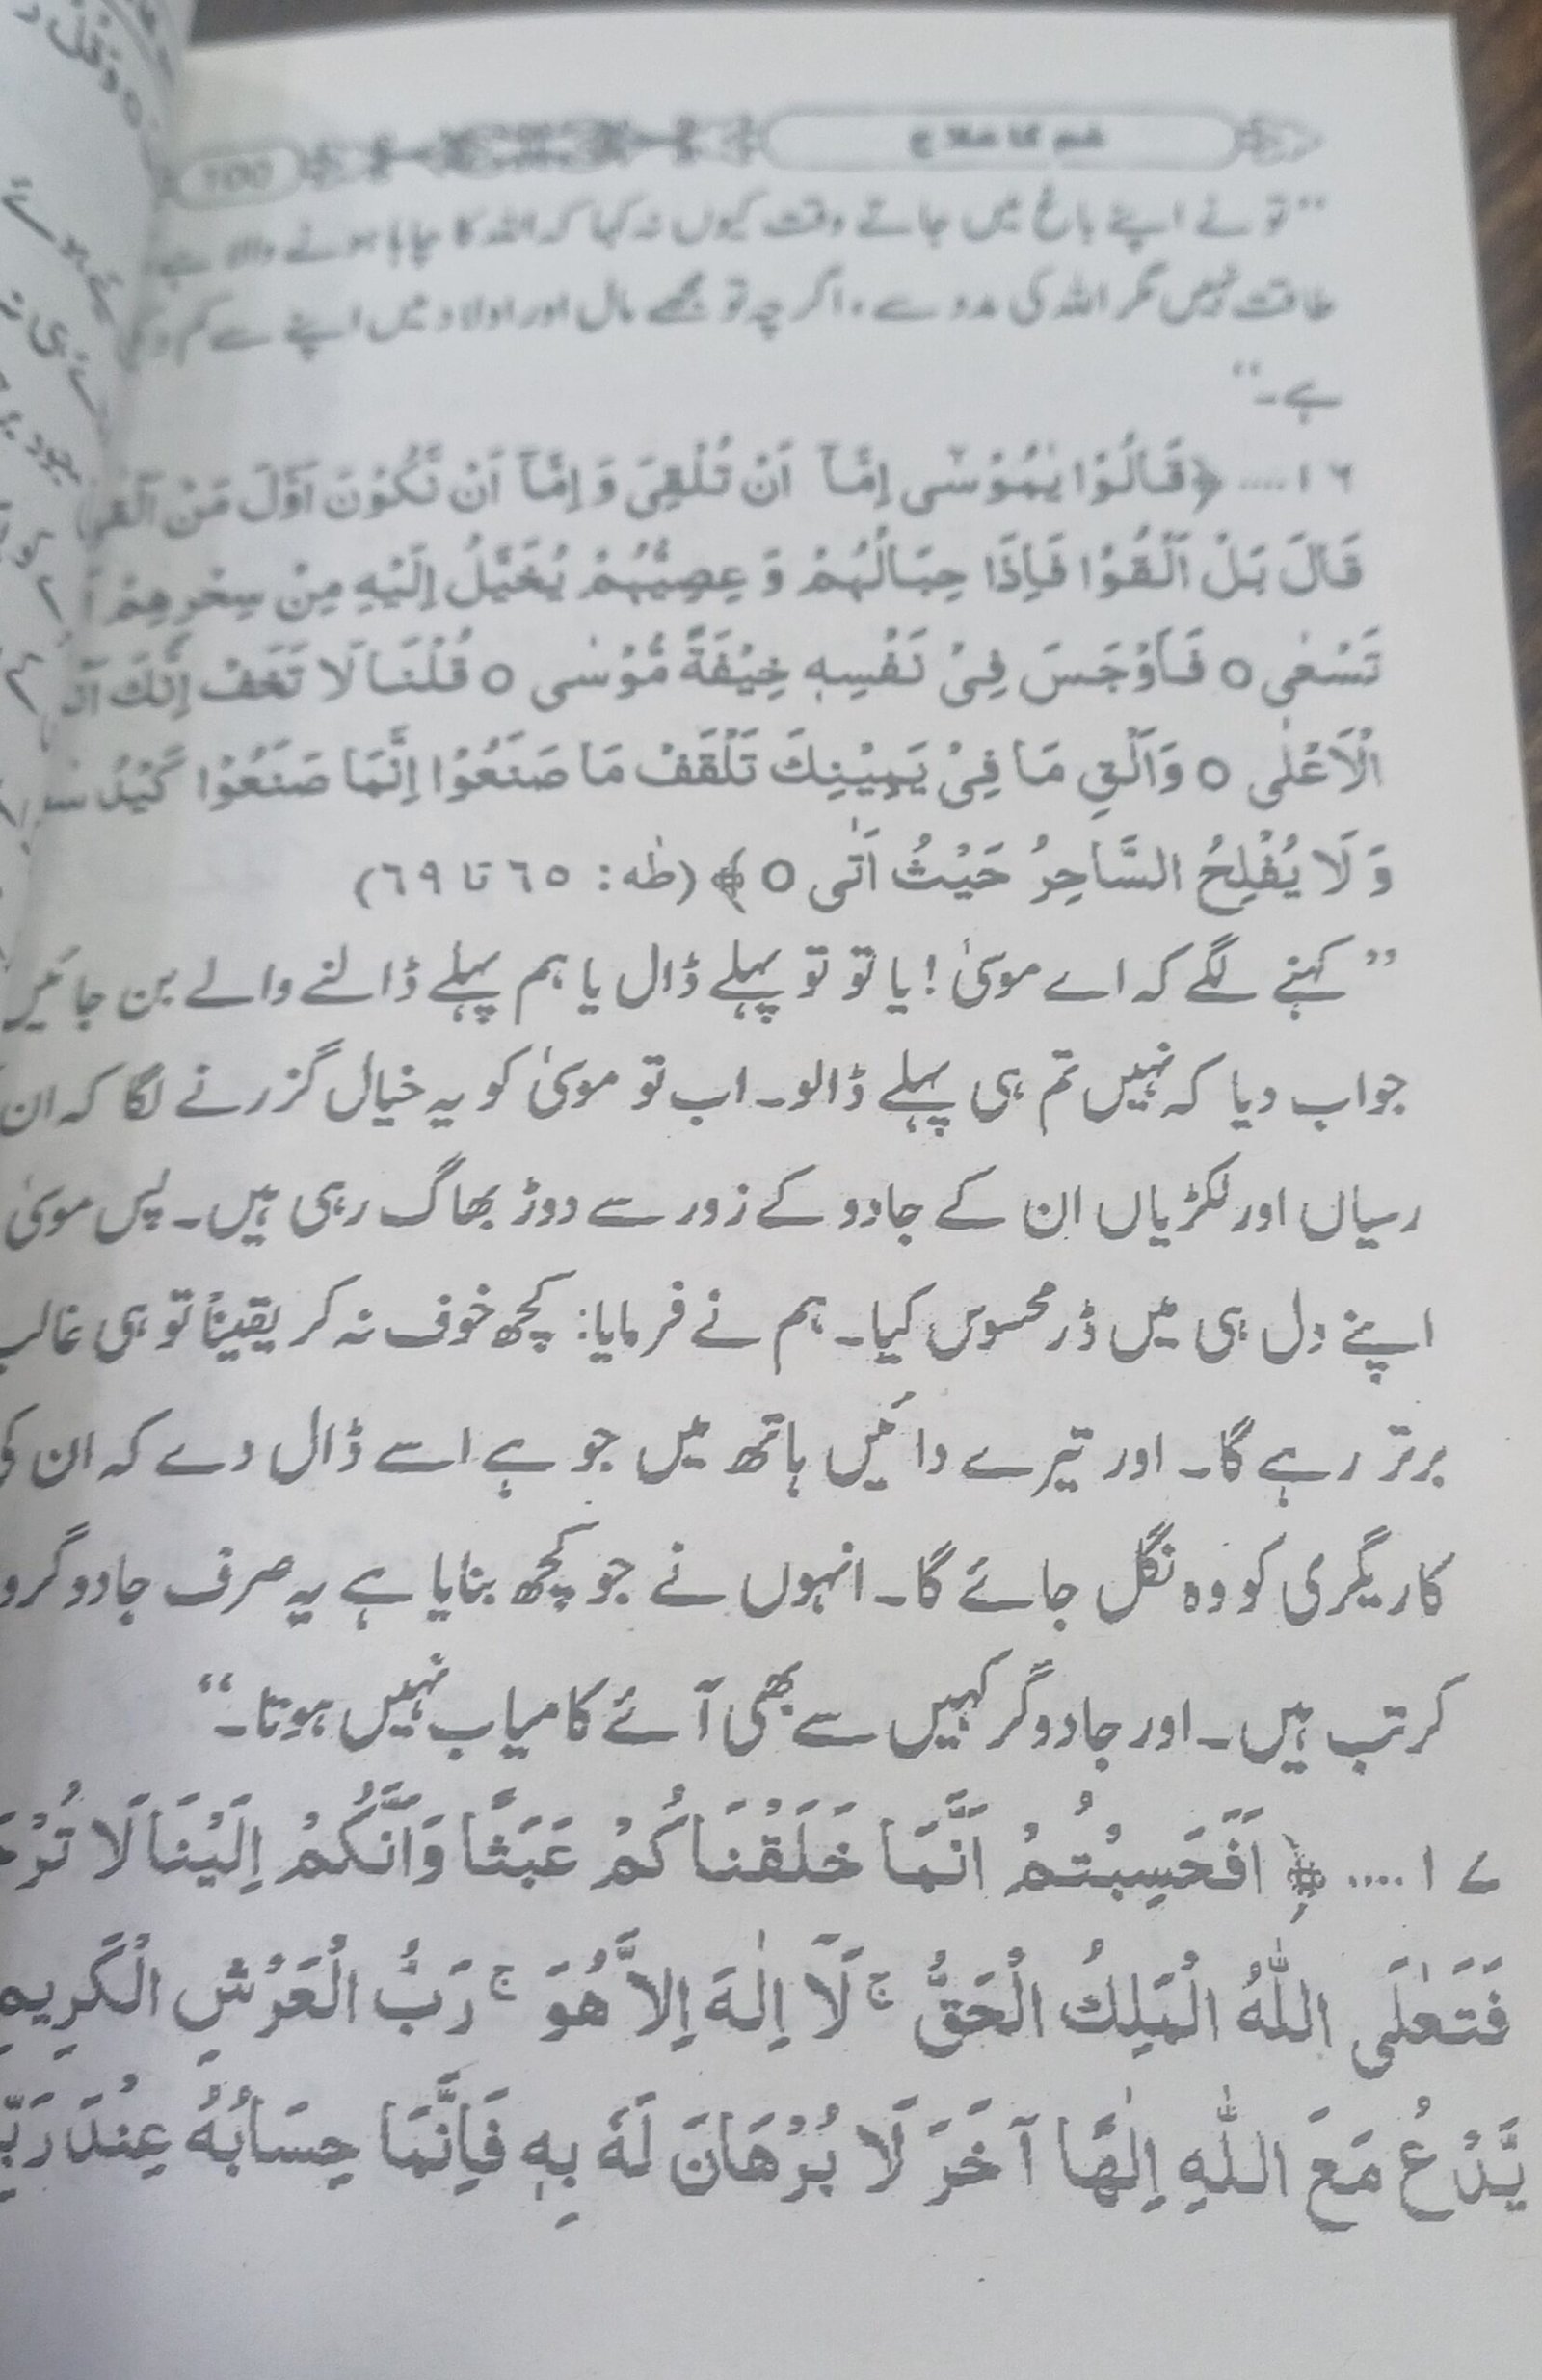 غم کا علاج
100
”تو نے اپنے باغ میں جاتے وقت کیوں نہ کہا کہ اللہ کا چاہا ہونے والا ہے
طاقت نہیں مگر اللہ کی مدد سے، اگرچہ تو مجھے مال اور اولاد میں اپنے سے کم
ہے۔“
۱۶.... ﴿قَالُوْا يٰمُوْسٰٓى اِمَّآ اَنْ تُلْقِيَ وَ اِمَّآ اَنْ نَّكُوْنَ اَوَّلَ مَنْ اَلْقٰى
قَالَ بَلْ اَلْقُوْا فَاِذَا حِبَالُهُمْ وَ عِصِيُّهُمْ يُخَيَّلُ اِلَيْهِ مِنْ سِحْرِهِمْ
تَسْعٰى ○ فَاَوْجَسَ فِيْ نَفْسِهٖ خِيْفَةً مُّوْسٰى ○ قُلْنَا لَا تَخَفْ اِنَّكَ
الْاَعْلٰى ○ وَاَلْقِ مَا فِيْ يَمِيْنِكَ تَلْقَفْ مَا صَنَعُوْا اِنَّمَا صَنَعُوْا كَيْدُ
وَ لَا يُفْلِحُ السَّاحِرُ حَيْثُ اَتٰى ○﴾ (طٰه: ٦٥ تا ٦٩)
”کہنے لگے کہ اے موسیٰ! یا تو تو پہلے ڈال یا ہم پہلے ڈالنے والے بن جائیں
جواب دیا کہ نہیں تم ہی پہلے ڈالو۔ اب تو موسیٰ کو یہ خیال گزرنے لگا کہ ان
رسیاں اور لکڑیاں ان کے جادو کے زور سے دوڑ بھاگ رہی ہیں۔ پس موسیٰ
اپنے دل ہی میں ڈر محسوس کیا۔ ہم نے فرمایا: کچھ خوف نہ کر یقیناً تو ہی غالب
برتر رہے گا۔ اور تیرے دائیں ہاتھ میں جو ہے اسے ڈال دے کہ ان کی
کاریگری کو وہ نگل جائے گا۔ انہوں نے جو کچھ بنایا ہے یہ صرف جادوگرو
کرتب ہیں۔ اور جادوگر کہیں سے بھی آئے کامیاب نہیں ہوتا۔“
۱۷.... ﴿اَفَحَسِبْتُمْ اَنَّمَا خَلَقْنَاكُمْ عَبَثًا وَاَنَّكُمْ اِلَيْنَا لَا
فَتَعٰلَى اللّٰهُ الْمَلِكُ الْحَقُّ ۚ لَآ اِلٰهَ اِلَّا هُوَ ۚ رَبُّ الْعَرْشِ الْكَرِيم
يَّدْعُ مَعَ اللّٰهِ اِلٰهًا آخَرَ لَا بُرْهَانَ لَهٗ بِهٖ فَاِنَّمَا حِسَابُهُ عِنْدَ رَبِّ